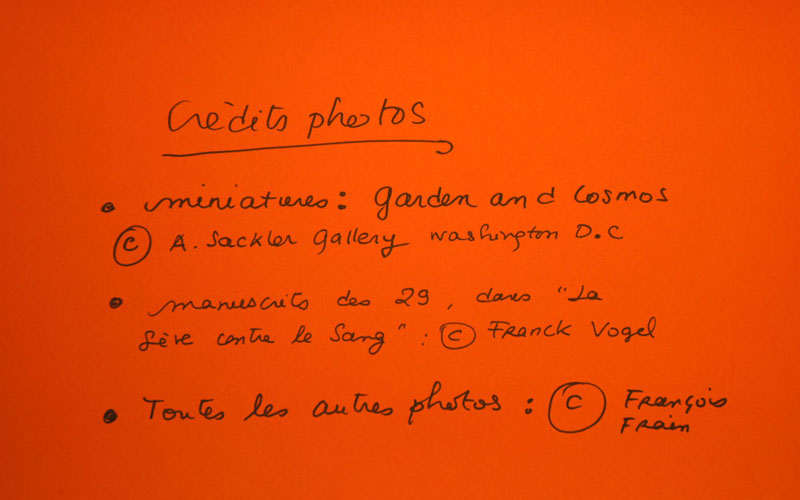 Crèdits photos
• miniatures: Garden and Cosmos
© A. Sackler Gallery Washington D.C
• manuscrits des 29, dans "La
Sève contre le Sang" : © Franck Vogel
• Toutes les autres photos : © François
Frain